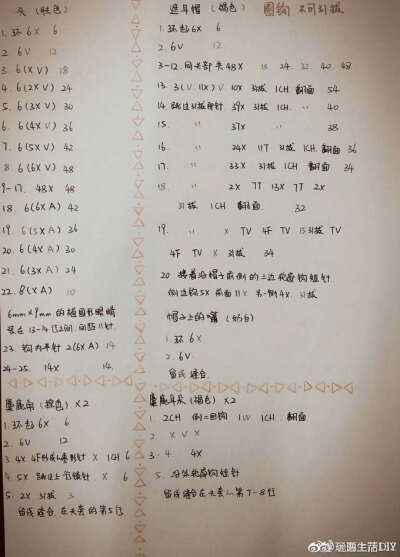 头 (肤色)
1. 环起 6X 6
2. 6V 12
3. 6(XV) 18
4. 6(2XV) 24
5. 6(3XV) 30
6. 6(4XV) 36
7. 6(5XV) 42
8. 6(6XV) 48
9-17. 48X 48
18 6(6XA) 42
19. 6(5XA) 36
20. 6(4XA) 30
21. 6(3XA) 24
22. 8(XA)
6mm×9mm的椭圆形眼睛
装在13-14行之间, 间距11针.
23. 钩内半针 2(6XA) 14
24-25. 14X 14.
遮耳帽 (褐色) 圈钩 不可引拔
1. 环起 6X 6
2. 6V 12
3-12. 同头部头 48X 18 24 32 40 48
13. 3(V. 11X)V. 10X 引拔 1CH 翻面 54
14. 跳过引拔那针 39X 引拔 1CH 〃 40
15. 〃 37X 〃 38
16. 〃 24X 11T 引拔 1CH 翻面 36
17. 〃 33X 引拔 1CH 翻面 34
18 〃 2X 7T 13X 7T 2X
引拔 1CH 翻面 32
19. 〃 X TV 4F TV 15引拔 TV
4F TV X 引拔 34
20. 接着沿帽子前侧的三边轮廓钩短针
侧边钩5X 前面11X 另一侧4X. 引拔
帽子上的嘴 (奶白)
1. 环 6X
2. 6V.
留线缝合.
麋鹿角 (棕色) X2
1. 环起 6X 6
2. 6V 12
3. 4X 4F形成的枣形针 X 1CH 6
4. 5X X 6
5. 2X 引拔 3
留线缝合在头套的第5行
麋鹿耳朵 (褐色) X2
1. 2CH 倒二回钩 1W 1CH 翻面
2. X V X
3. 4 4X
5. 沿外轮廓钩短针
留线缝合在头套的第7-8行
瑶瑶生活DIY